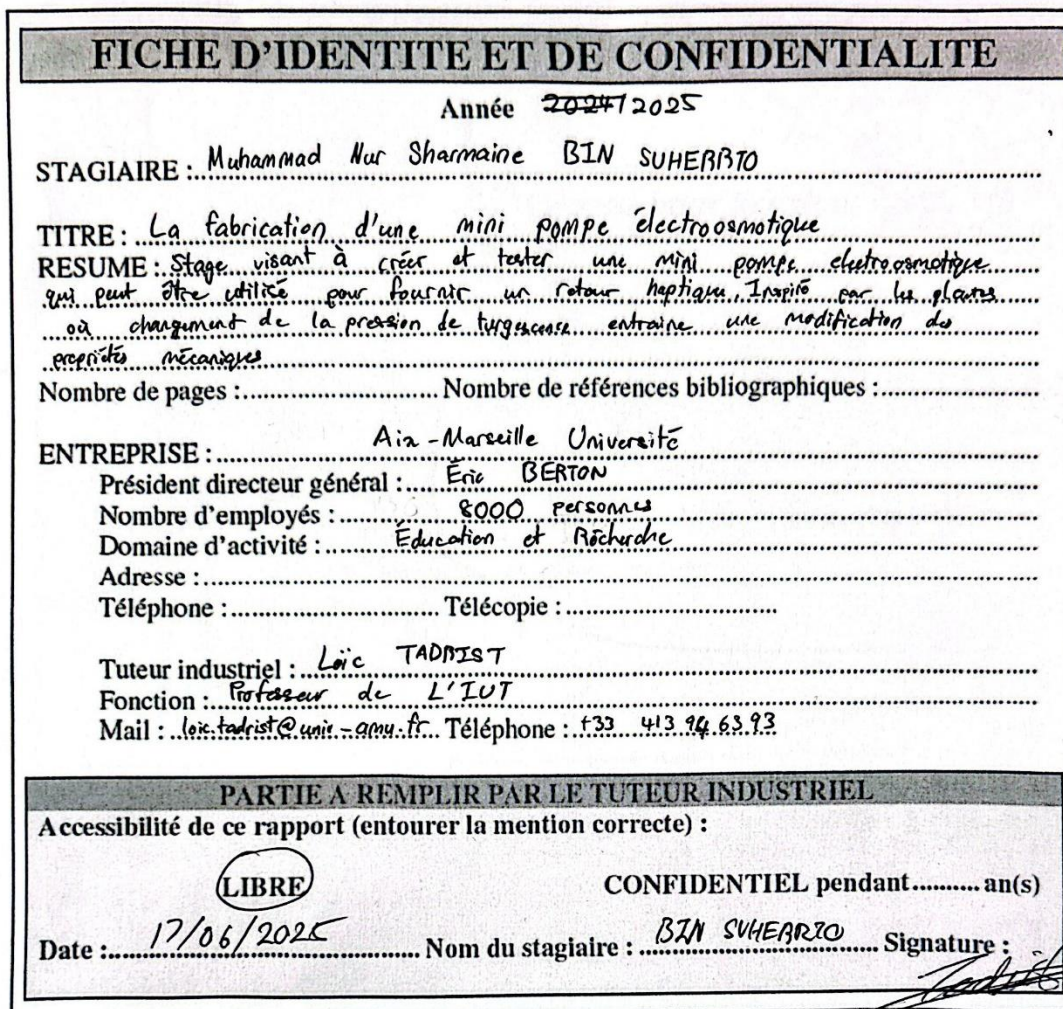 FICHE D'IDENTITE ET DE CONFIDENTIALITE
Année 2024/2025
STAGIAIRE : Muhammad Nur Sharmaine BIN
TITRE : La fabrication d'une mini pompe électroosmotique
RESUME : Stage visant à créer et tester une mini pompe electroosmotique
qui peut être utilisé pour fournir un retour haptique. Inspiré par les plantes
où changement de la pression de turgescence entraine une modification des
propriétés mécaniques
Nombre de pages : Nombre de références bibliographiques :
ENTREPRISE : Aix-Marseille Université
Président directeur général : Éric BERTON
Nombre d'employés : 8000 personnes
Domaine d'activité : Éducation et Recherche
Adresse :
Téléphone : Télécopie :
Tuteur industriel : Loïc TADRIST
Fonction : Professeur de L'IUT
Mail : loic.tadrist@univ-amu.fr Téléphone : +33 413.94.63.93
PARTIE A REMPLIR PAR LE TUTEUR INDUSTRIEL
Accessibilité de ce rapport (entourer la mention correcte) :
LIBRE CONFIDENTIEL pendant.......... an(s)
Date : 17/06/2025 Nom du stagiaire : BIN Signature :